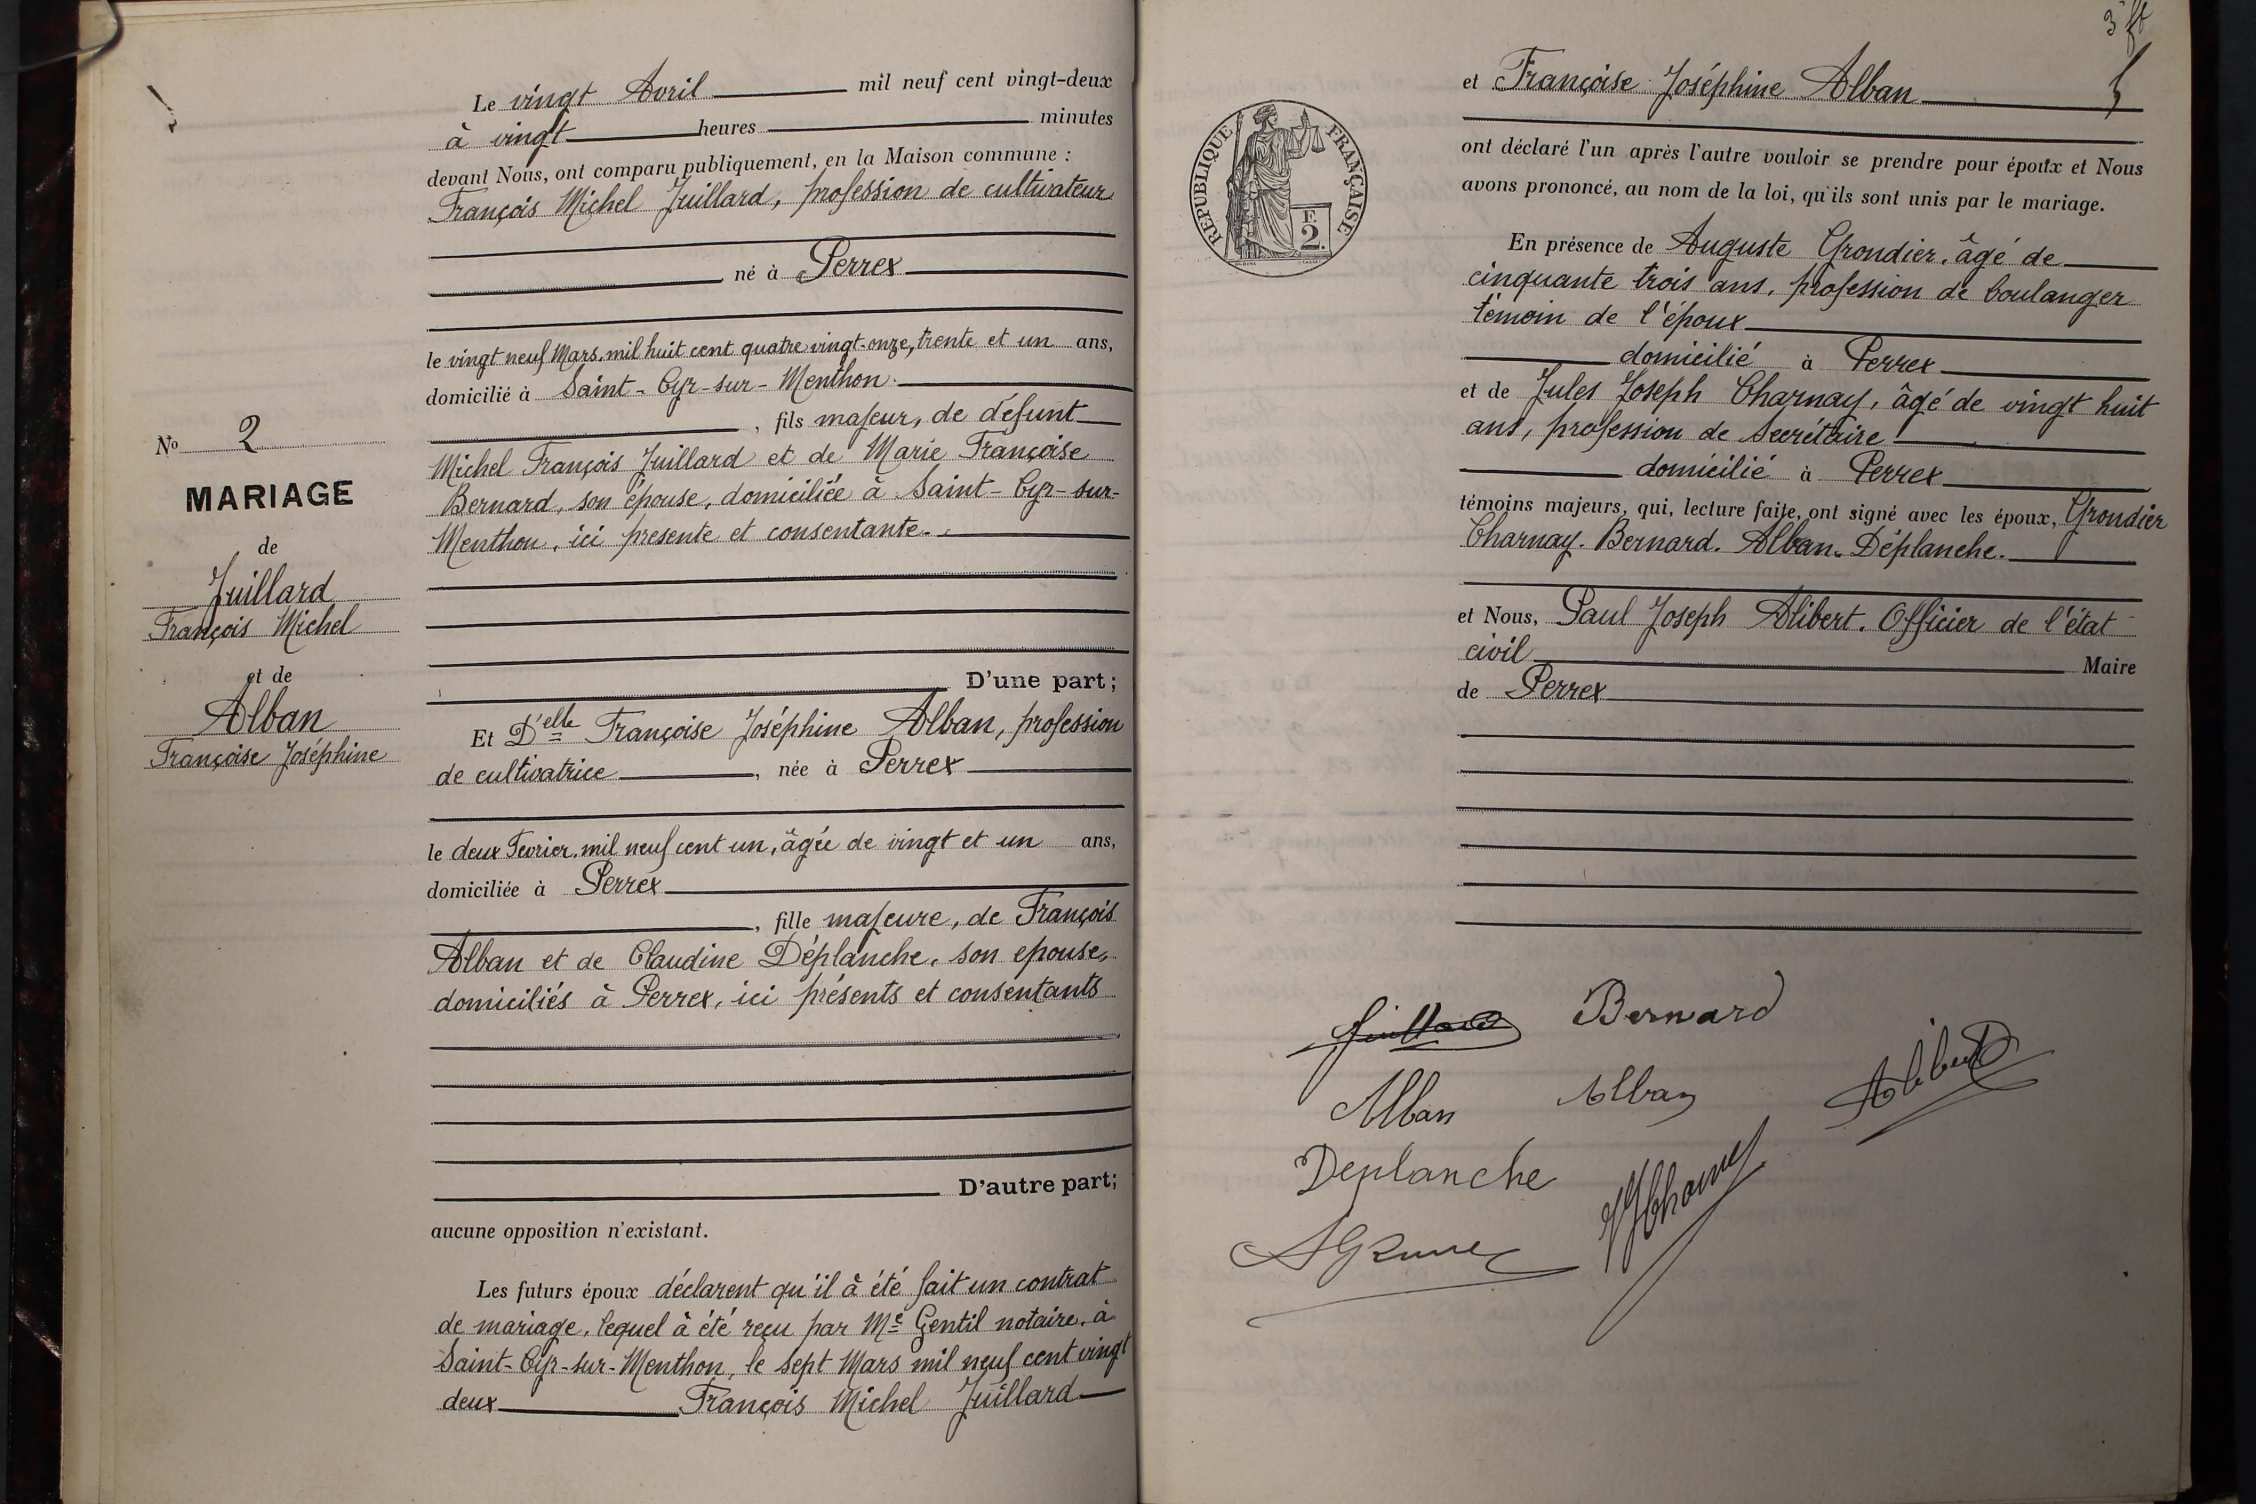 Le vingt Avril mil neuf cent vingt-deux
à vingt heures minutes
devant Nous, ont comparu publiquement, en la Maison commune :
François Michel Juillard, profession de cultivateur
né à Perrex
le vingt neuf Mars, mil huit cent quatre vingt-onze, trente et un ans,
domicilié à Saint-Cyr-sur-Menthon.
, fils majeur, de défunt
Michel François Juillard et de Marie Françoise
Bernard, son épouse, domiciliée à Saint-Cyr-sur-
Menthon, ici presente et consentante.
D'une part;
Et D'elle Françoise Joséphine Alban, profession
de cultivatrice, née à Perrex
le deux Fevrier, mil neuf cent un, âgée de vingt et un ans,
domiciliée à Perrex
, fille majeure, de François
Alban et de Claudine Déplanche, son epouse,
domiciliés à Perrex, ici présents et consentants
D'autre part;
aucune opposition n'existant.
Les futurs époux déclarent qu'il à été fait un contrat
de mariage, lequel à été reçu par Me Gentil notaire, à
Saint-Cyr-sur-Menthon, le sept Mars mil neuf cent vingt
deux François Michel Juillard
No 2
MARIAGE
de
Juillard
François Michel
et de
Alban
Françoise Joséphine
et Françoise Joséphine Alban
ont déclaré l'un après l'autre vouloir se prendre pour époux et Nous
avons prononcé, au nom de la loi, qu'ils sont unis par le mariage.
En présence de Auguste Grondier, âgé de
cinquante trois ans, profession de boulanger
témoin de l'époux
domicilié à Perrex
et de Jules Joseph Charnay, âgé de vingt huit
ans, profession de Secrétaire
domicilié à Perrex
témoins majeurs, qui, lecture faite, ont signé avec les époux, Grondier
Charnay. Bernard. Alban. Déplanche.
et Nous, Paul Joseph Alibert. Officier de l'état
civil Maire
de Perrex
REPUBLIQUE FRANÇAISE
F.
2.
Juillard Bernard
Alban Alban Alibert
Deplanche